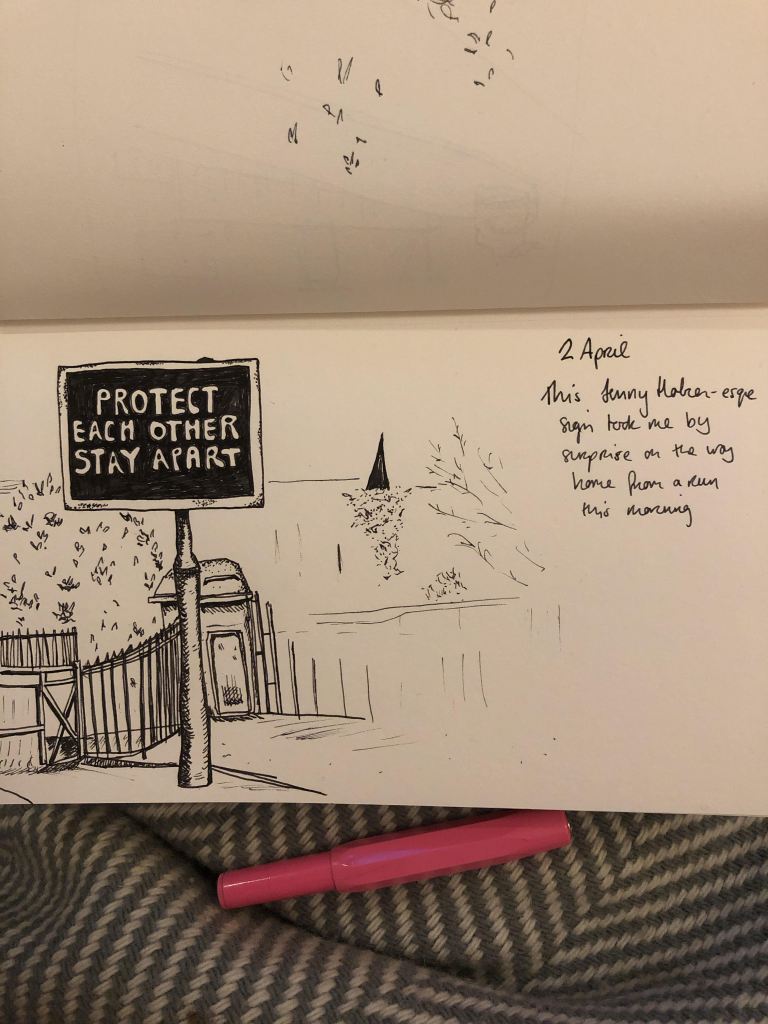 PROTECT
EACH OTHER
STAY APART
2 April
This Jenny Holzer-esque
sign took me by
surprise on the way
home from a run
this morning